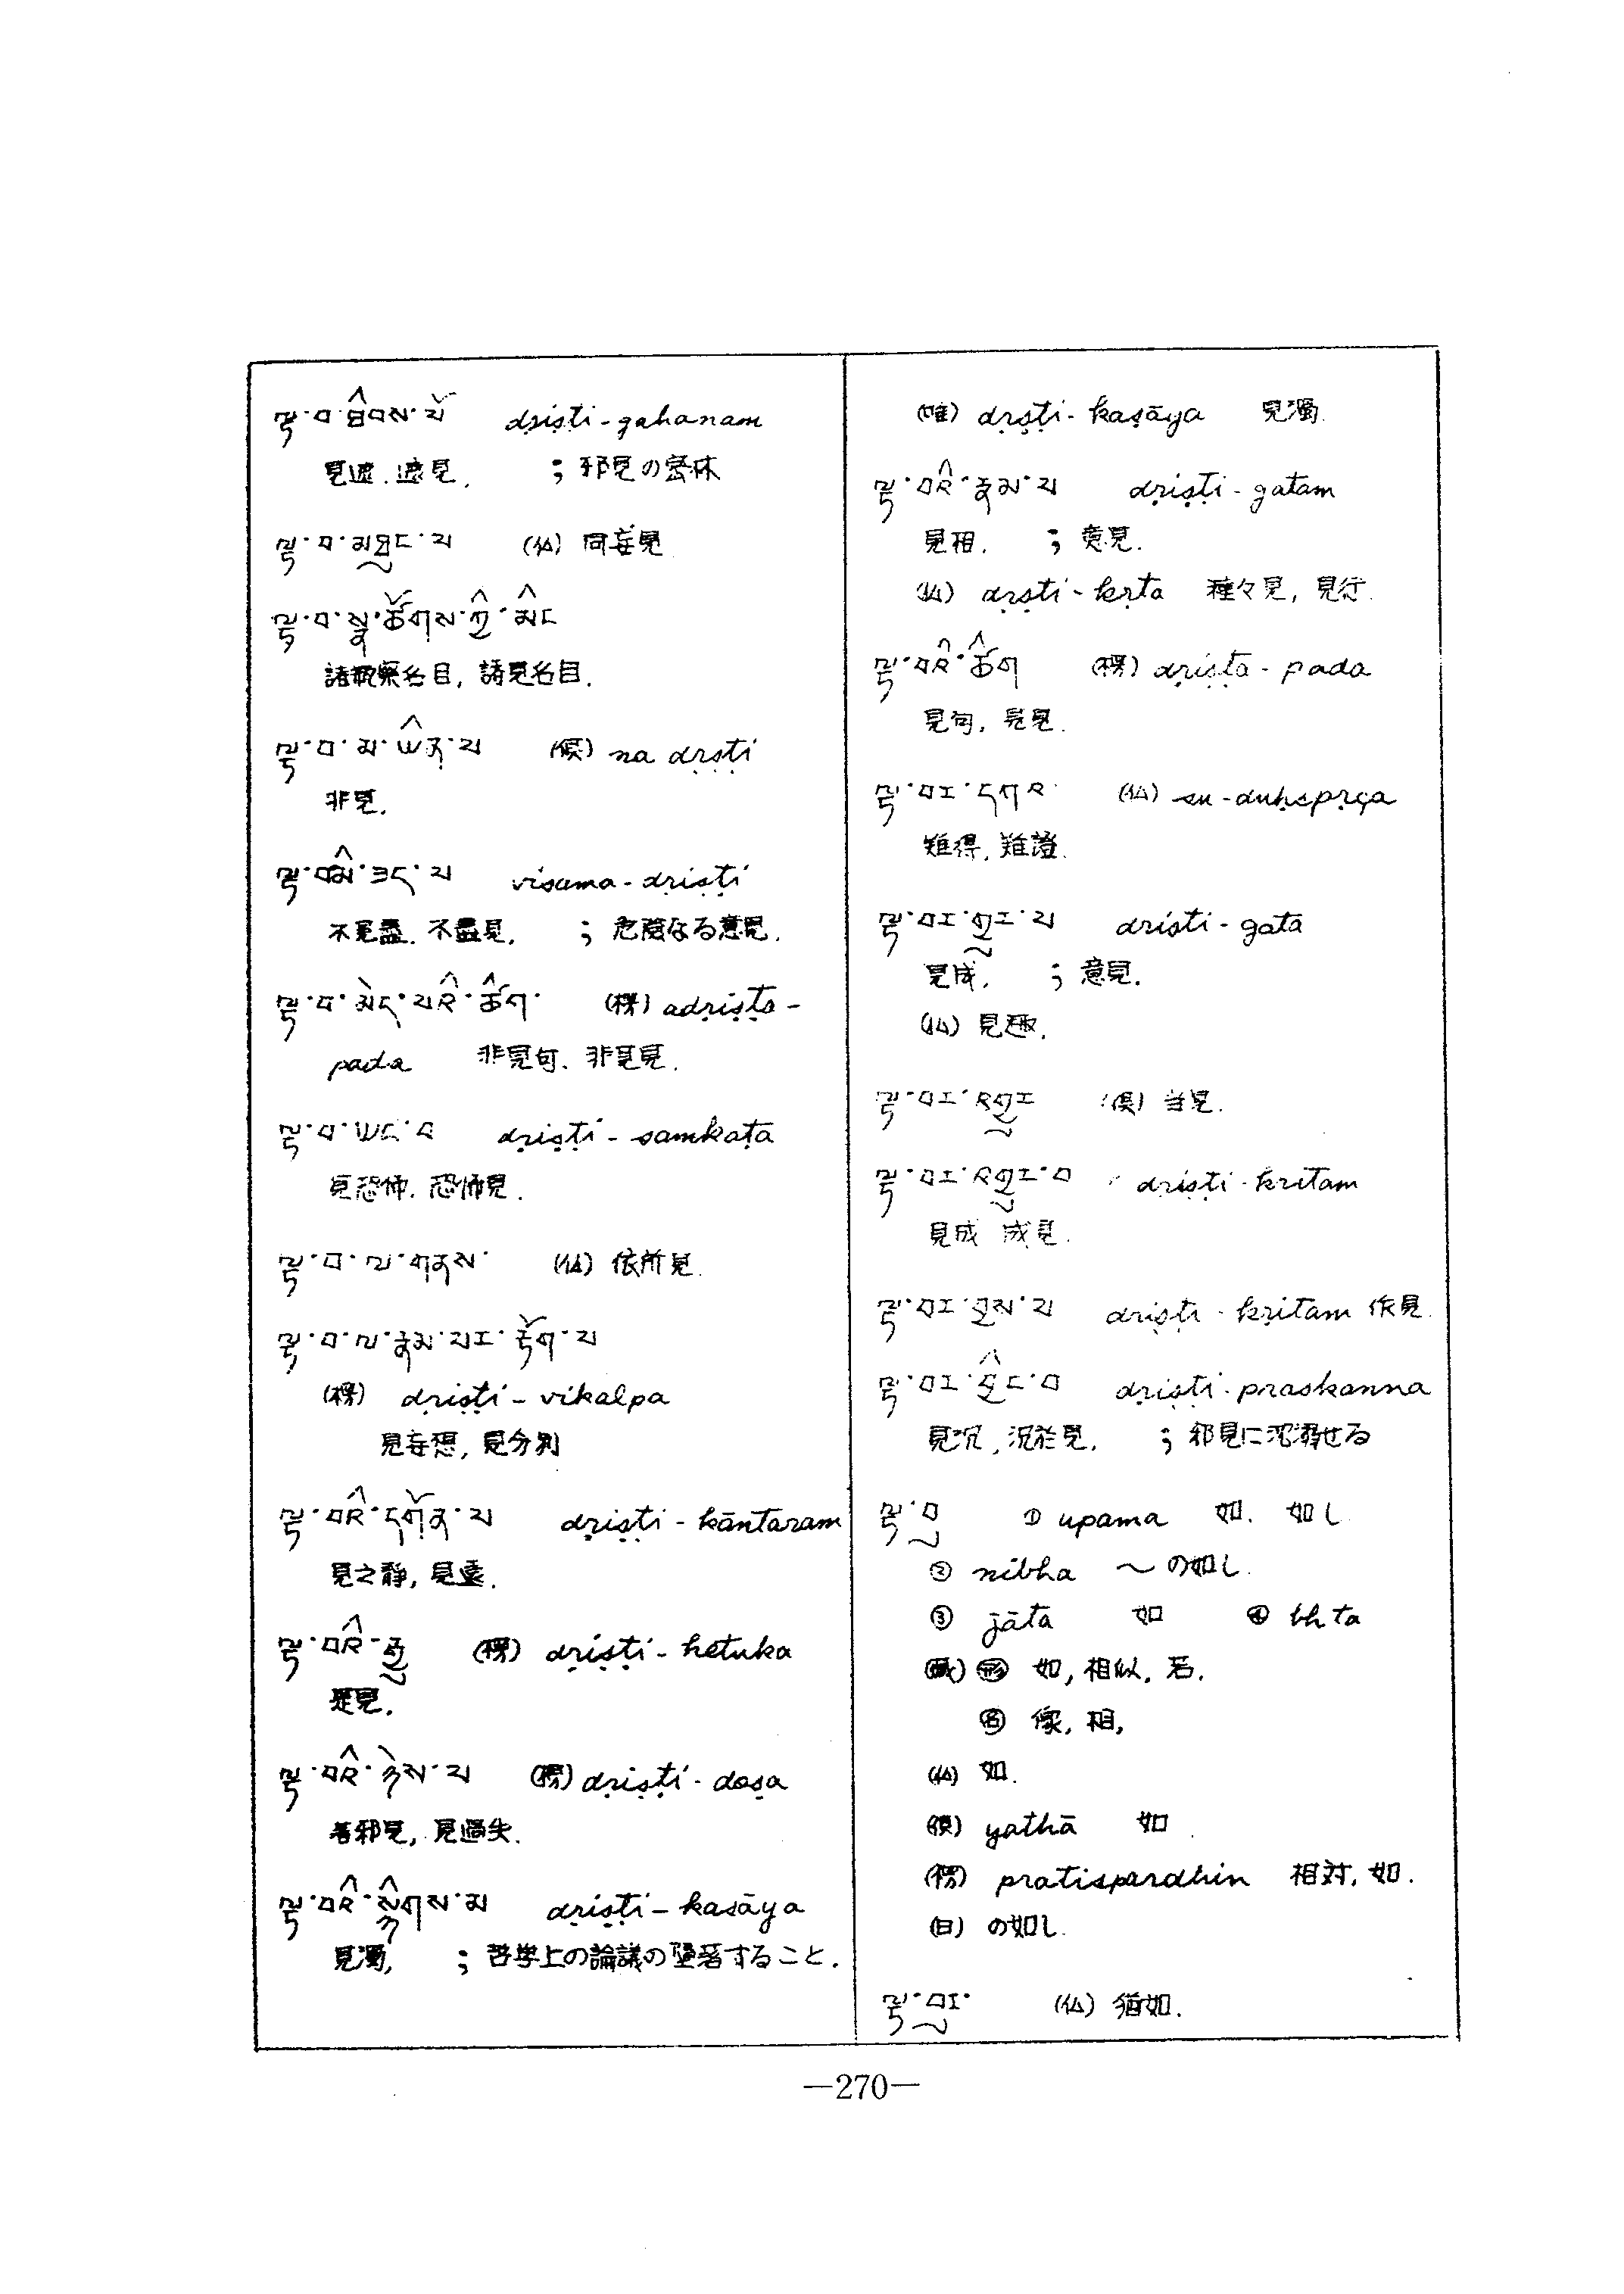 ལྟ་བ་ཐིབས་པོ dṛiṣṭi-gahanam
見遮. 遮見. ; 邪見の密林
ལྟ་བ་མཐུང་པ (仏) 同妄見
ལྟ་བ་སྣ་ཚོགས་ཀྱི་མིང
諸観察名目, 諸見名目.
ལྟ་བ་མ་ཡིན་པ (倶) na dṛṣṭi
非見.
ལྟ་བ་མི་ཟད་པ visama-dṛiṣṭi
不見盡. 不盡見. ; 危険なる意見.
ལྟ་བ་མེད་པའི་ཚིག་ (楞) adṛiṣṭa-
pada 非見句. 非見見.
ལྟ་བ་ཡང་བ dṛiṣṭi-samkaṭa
見恐怖. 恐怖見.
ལྟ་བ་ལ་གནས་ (仏) 依所見.
ལྟ་བ་ལ་རྣམ་པར་རྟོག་པ
(楞) dṛiṣṭi-vikalpa
見妄想, 見分別
ལྟ་བའི་དགོན་པ dṛiṣṭi-kāntaram
見之静, 見遠.
ལྟ་བའི་རྒྱུ (楞) dṛiṣṭi-hetuka
是見.
ལྟ་བའི་ཉེས་པ (楞) dṛiṣṭi-doṣa
著邪見, 見過失.
ལྟ་བའི་སྙིགས་མ dṛiṣṭi-kaṣāya
見濁, ; 哲学上の論議の墮落すること.
(唯) dṛṣṭi-kaṣāya 見濁.
ལྟ་བའི་རྣམ་པ dṛiṣṭi-gatam
見相. ; 意見.
(仏) dṛṣṭi-kṛta 種々見, 見行.
ལྟ་བའི་ཚིག (楞) dṛiṣṭa-pada
見句, 見見.
ལྟ་བར་དཀའ་ (仏) su-duḥspṛça
難得, 難證.
ལྟ་བར་གྱུར་པ dṛiṣti-gata
見成. ; 意見.
(仏) 見趣.
ལྟ་བར་འགྱུར (倶) 当見.
ལྟ་བར་འགྱུར་བ dṛiṣṭi-kritam
見成 成見.
ལྟ་བར་བྱས་པ dṛiṣṭi-kṛitam 作見.
ལྟ་བར་བྱིང་བ dṛiṣṭi-praskanna
見沉, 沉於見. ; 邪見に沈溺せる
ལྟ་བུ ① upama 如. 如し
② nibha ～の如し.
③ jāta 如 ④ bhta
(蔵) ㊋ 如, 相似. 若.
㊔ 像, 相,
(仏) 如.
(倶) yathā 如.
(楞) pratispardhin 相対, 如.
(日) の如し.
ལྟ་བུར་ (仏) 猶如.
—270—